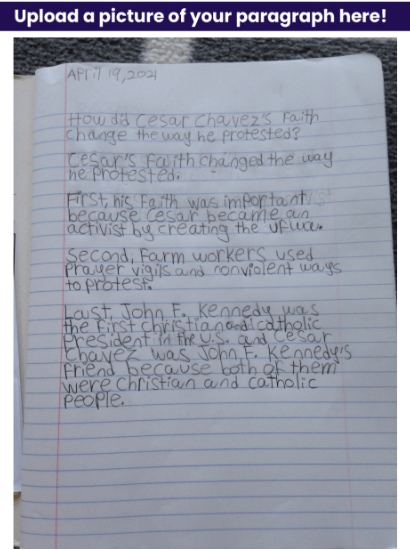 Upload a picture of your paragraph here!
April 19, 2021
How did Cesar Chavez's Faith
change the way he protested?
Cesar's Faith changed the way
he Protested.
First, his Faith was important
because Cesar became an
activist by creating the UFWA.
Second, Farm workers used
Prayer vigils and nonviolent ways
to protest.
Last, John F. Kennedy was
the First christian and catholic
President in the U.S. and Cesar
Chavez was John F. Kennedy's
Friend because both of them
were Christian and catholic
People.